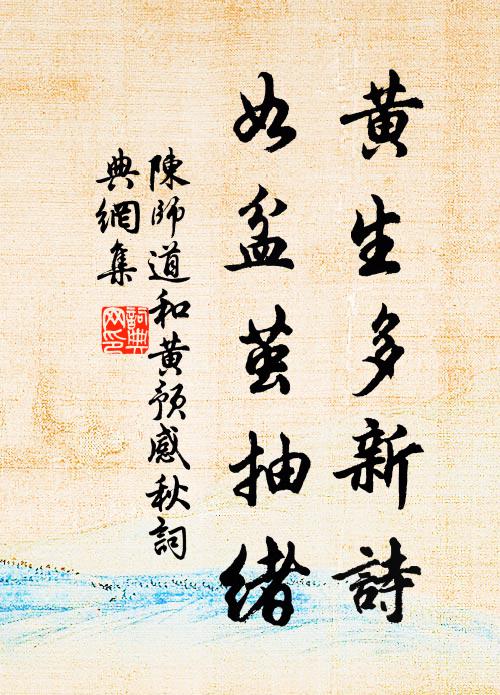 黄生多新詩
如盆茧抽緒
陳師道和黃預感秋詞
典網集
詞典
网印